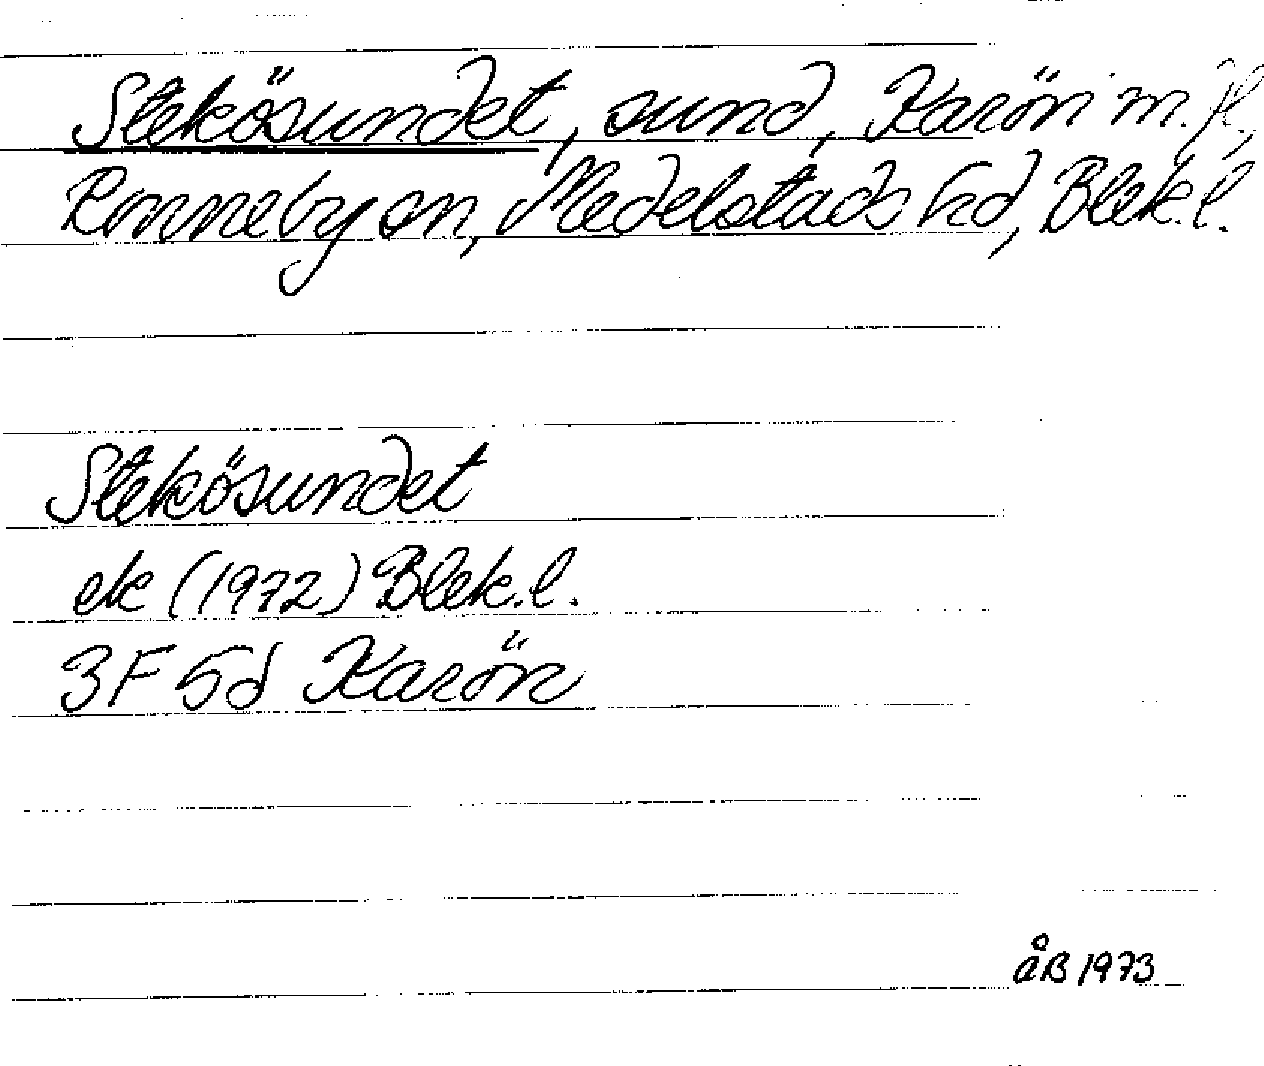 Stekösundet, sund, Karön m.fl.,
Ronneby sn, Medelstads hd, Blek.l.
Stekösundet
ek (1972) Blek.l.
3F 5d Karön
åB 1973